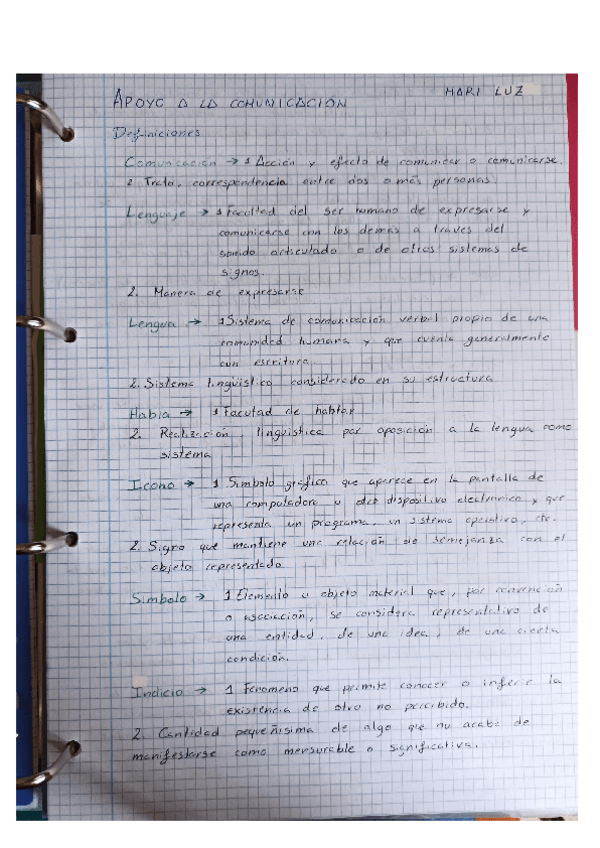 MARI LUZ
APOYO A LA COMUNICACIÓN
Definiciones
Comunicación → 1 Acción y efecto de comunicar o comunicarse.
2. Trato, correspondencia entre dos o más personas
Lenguaje → 1 Facultad del ser humano de expresarse y
comunicarse con los demás a traves del
sonido articulado o de otros sistemas de
signos.
2. Manera de expresarse
Lengua → 1 Sistema de comunicación verbal propio de una
comunidad humana y que cuenta generalmente
con escritura.
2. Sistema linguistico considerado en su estructura
Habla → 1 Facultad de hablar
2. Realización, linguistica por oposición a la lengua como
sistema
Icono → 1 Simbolo gráfico que aparece en la pantalla de
una computadora u otro dispositivo electronico y que
representa un programa, un sistema operativo, etc.
2. Signo que mantiene una relación de semejanza con el
objeto representado
Simbolo → 1 Elemento u objeto material que, por convención
o asociación, se considera representativo de
una entidad, de una idea, de una cierta
condición.
Indicio → 1 Fenomeno que permite conocer o inferir la
existencia de otro no percibido.
2. Cantidad pequeñisima de algo que no acaba de
manifestarse como mensurable o significativa.